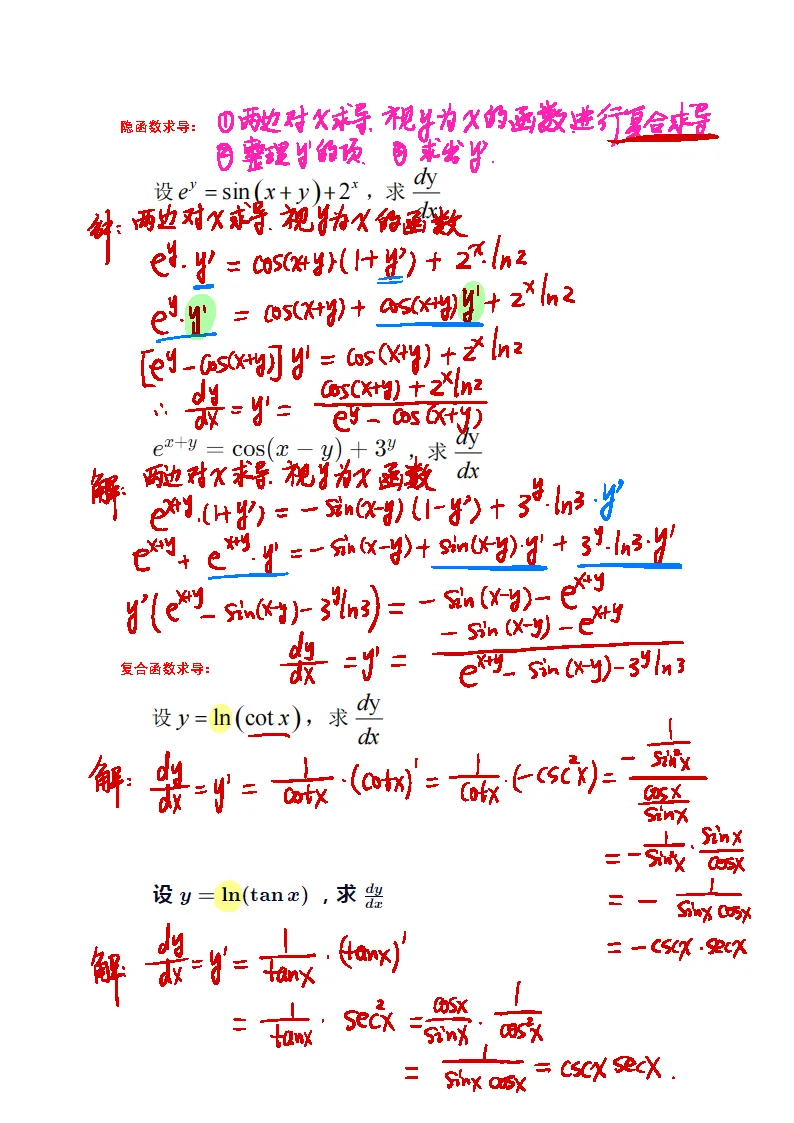 隐函数求导: ①两边对x求导.视y为x的函数进行复合求导
②整理y'的项. ③求出y'.
设 e^y = sin(x+y)+2^x ，求 dy/dx
解: 两边对x求导.视y为x的函数
e^y · y' = cos(x+y)(1+y') + 2^x · ln2
e^y · y' = cos(x+y) + cos(x+y)y' + 2^x ln2
[e^y - cos(x+y)] y' = cos(x+y) + 2^x ln2
∴ dy/dx = y' = (cos(x+y) + 2^x ln2)/(e^y - cos(x+y))
e^{x+y} = cos(x − y) + 3^y ，求 dy/dx
解: 两边对x求导.视y为x函数
e^{x+y} · (1+y') = -sin(x-y)(1-y') + 3^y · ln3 · y'
e^{x+y} + e^{x+y} · y' = -sin(x-y) + sin(x-y) · y' + 3^y · ln3 · y'
y'(e^{x+y} - sin(x-y) - 3^y ln3) = -sin(x-y) - e^{x+y}
dy/dx = y' = (-sin(x-y) - e^{x+y})/(e^{x+y} - sin(x-y) - 3^y ln3)
复合函数求导:
设 y = ln(cot x)，求 dy/dx
解: dy/dx = y' = 1/cotx · (cotx)' = 1/cotx · (-csc²x) = (-1/sin²x)/(cosx/sinx)
= -1/sin²x · sinx/cosx
= - 1/(sinx cosx)
= -cscx · secx
设 y = ln(tan x) ，求 dy/dx
解: dy/dx = y' = 1/tanx · (tanx)'
= 1/tanx · sec²x = cosx/sinx · 1/cos²x
= 1/(sinx cosx) = cscx secx.